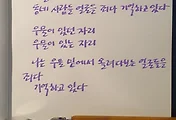 동네 사람들 얼굴을 죄다 기억하고 있다
우물이 있던 자리
우물이 있는 자리
나는 우물 밑에서 올려다보는 얼굴들을
죄다
기억하고 있다